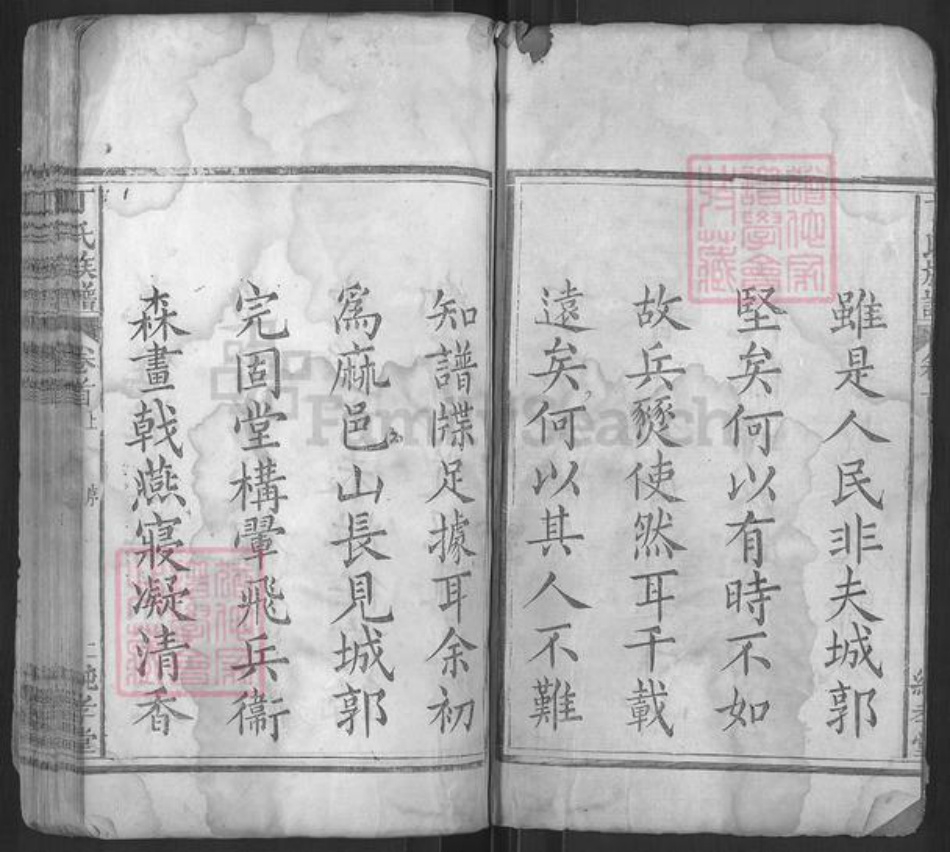 雖是人民非夫城郭
堅矣何以有時不如
故兵燹使然耳千載
遠矣何以其人不難
知譜牒足據耳余初
為麻邑山長見城郭
完固堂構翬飛兵衞
森畫戟燕寢凝清香
丁氏族譜
卷首上
序
純孝堂
FamilySearch